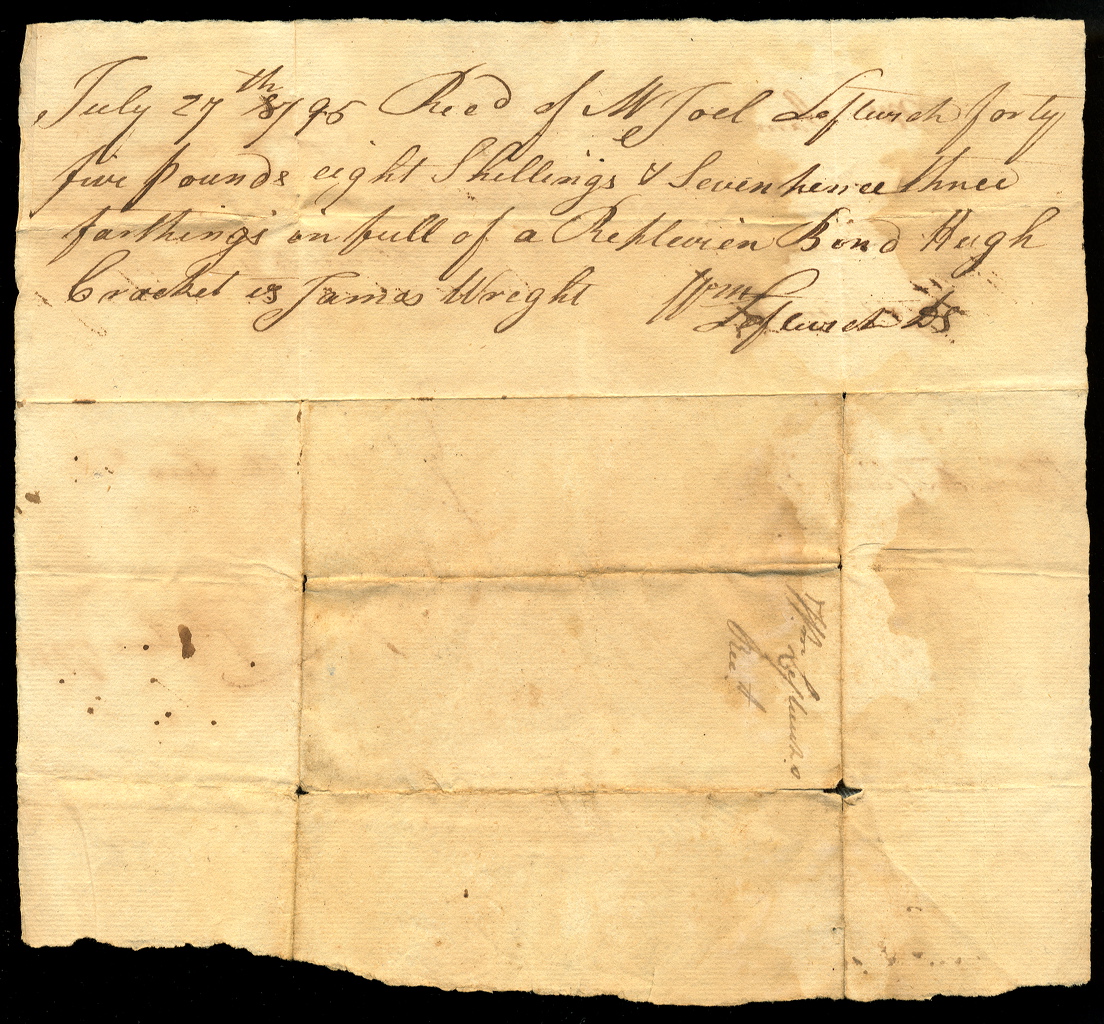 July 27th 1795 Recd of Mr Joel Leftwich forty
five pounds eight Shillings & Sevenpence three
farthings in full of a Replevien Bond Hugh
Crocket vs James Wright Wm
Leftwich DS.
Wm Leftwich.s
Rec.t